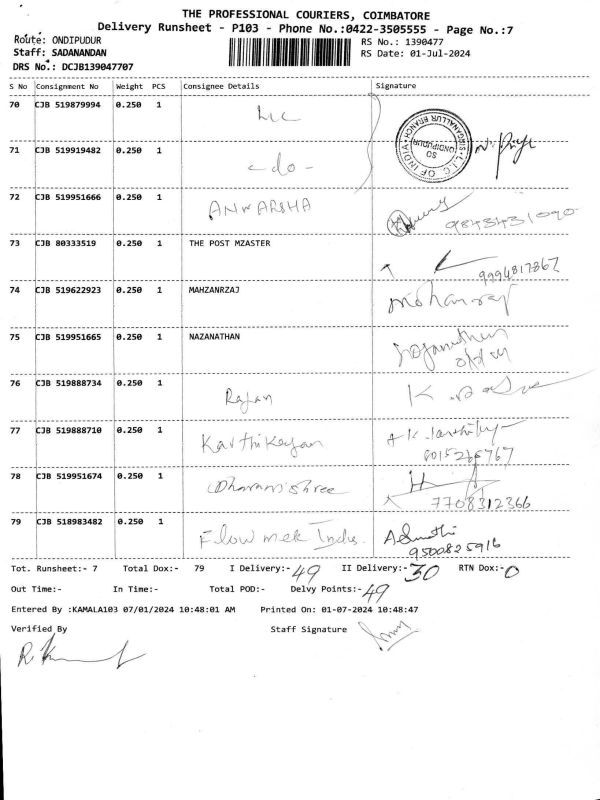 THE PROFESSIONAL COURIERS, COIMBATORE
Delivery Runsheet - P103 - Phone No.:0422-3505555 - Page No.:7
Route: ONDIPUDUR RS No.: 1390477
Staff: SADANANDAN RS Date: 01-Jul-2024
DRS No.: DCJB139047707
S No Consignment No Weight PCS Consignee Details Signature
70 CJB 519879994 0.250 1 LIC
71 CJB 519919482 0.250 1 -do-
L.I.C. OF INDIA SINGANALLUR BRANCH SO ONDIPUDUR
72 CJB 519951666 0.250 1 ANWARSHA 9843431090
73 CJB 80333519 0.250 1 THE POST MZASTER 9994817867
74 CJB 519622923 0.250 1 MAHZANRZAJ mohanraj
75 CJB 519951665 0.250 1 NAZANATHAN
76 CJB 519888734 0.250 1 Rajan K
77 CJB 519888710 0.250 1 Karthikeyan
78 CJB 519951674 0.250 1 Dharanishree 7708312366
79 CJB 518983482 0.250 1 Flow mek Indus. 9500825916
Tot. Runsheet:- 7 Total Dox:- 79 I Delivery:- 49 II Delivery:- 30 RTN Dox:- 0
Out Time:- In Time:- Total POD:- Delvy Points:- 49
Entered By :KAMALA103 07/01/2024 10:48:01 AM Printed On: 01-07-2024 10:48:47
Verified By Staff Signature